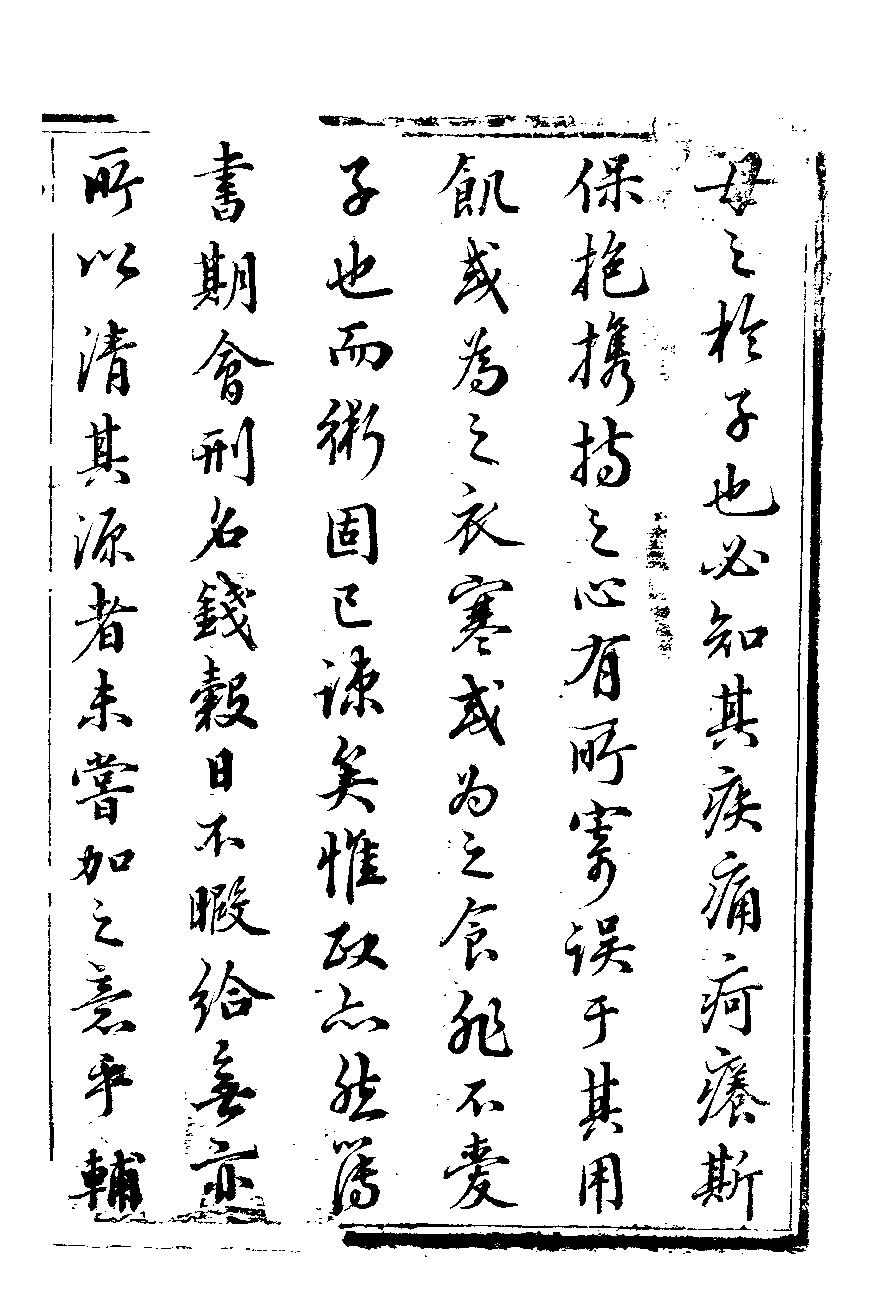 母之於子也必知其疾痛疴癢斯
保抱擕持之心有所寄誤于其用
飢或為之衣寒或为之食非不愛
子也而術固已疎矣惟政亦然簿
書期會刑名錢穀日不暇給無亦
所以清其源者未嘗加之意乎輔